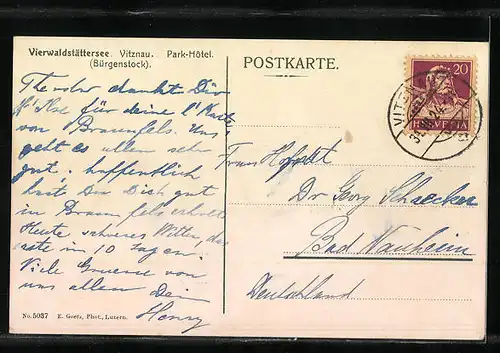 Vierwaldstättersee. Vitznau. Park-Hôtel.
(Bürgenstock).
dankt Dir
für deine l. Karte
von Braunfels. Uns
geht es allen sehr
gut, hoffentlich
hast Du Dich gut
in Braunfels erholt
Heute schönes Wetter, das
erste in 10 Tagen.
Viele Gruesse von
uns allen Dein
Henry
No. 5037 E. Goetz, Phot., Luzern.
POSTKARTE.
20
HELVETIA
VITZNAU
Frau
Dr Georg Schaecker
Bad Nauheim
Deutschland